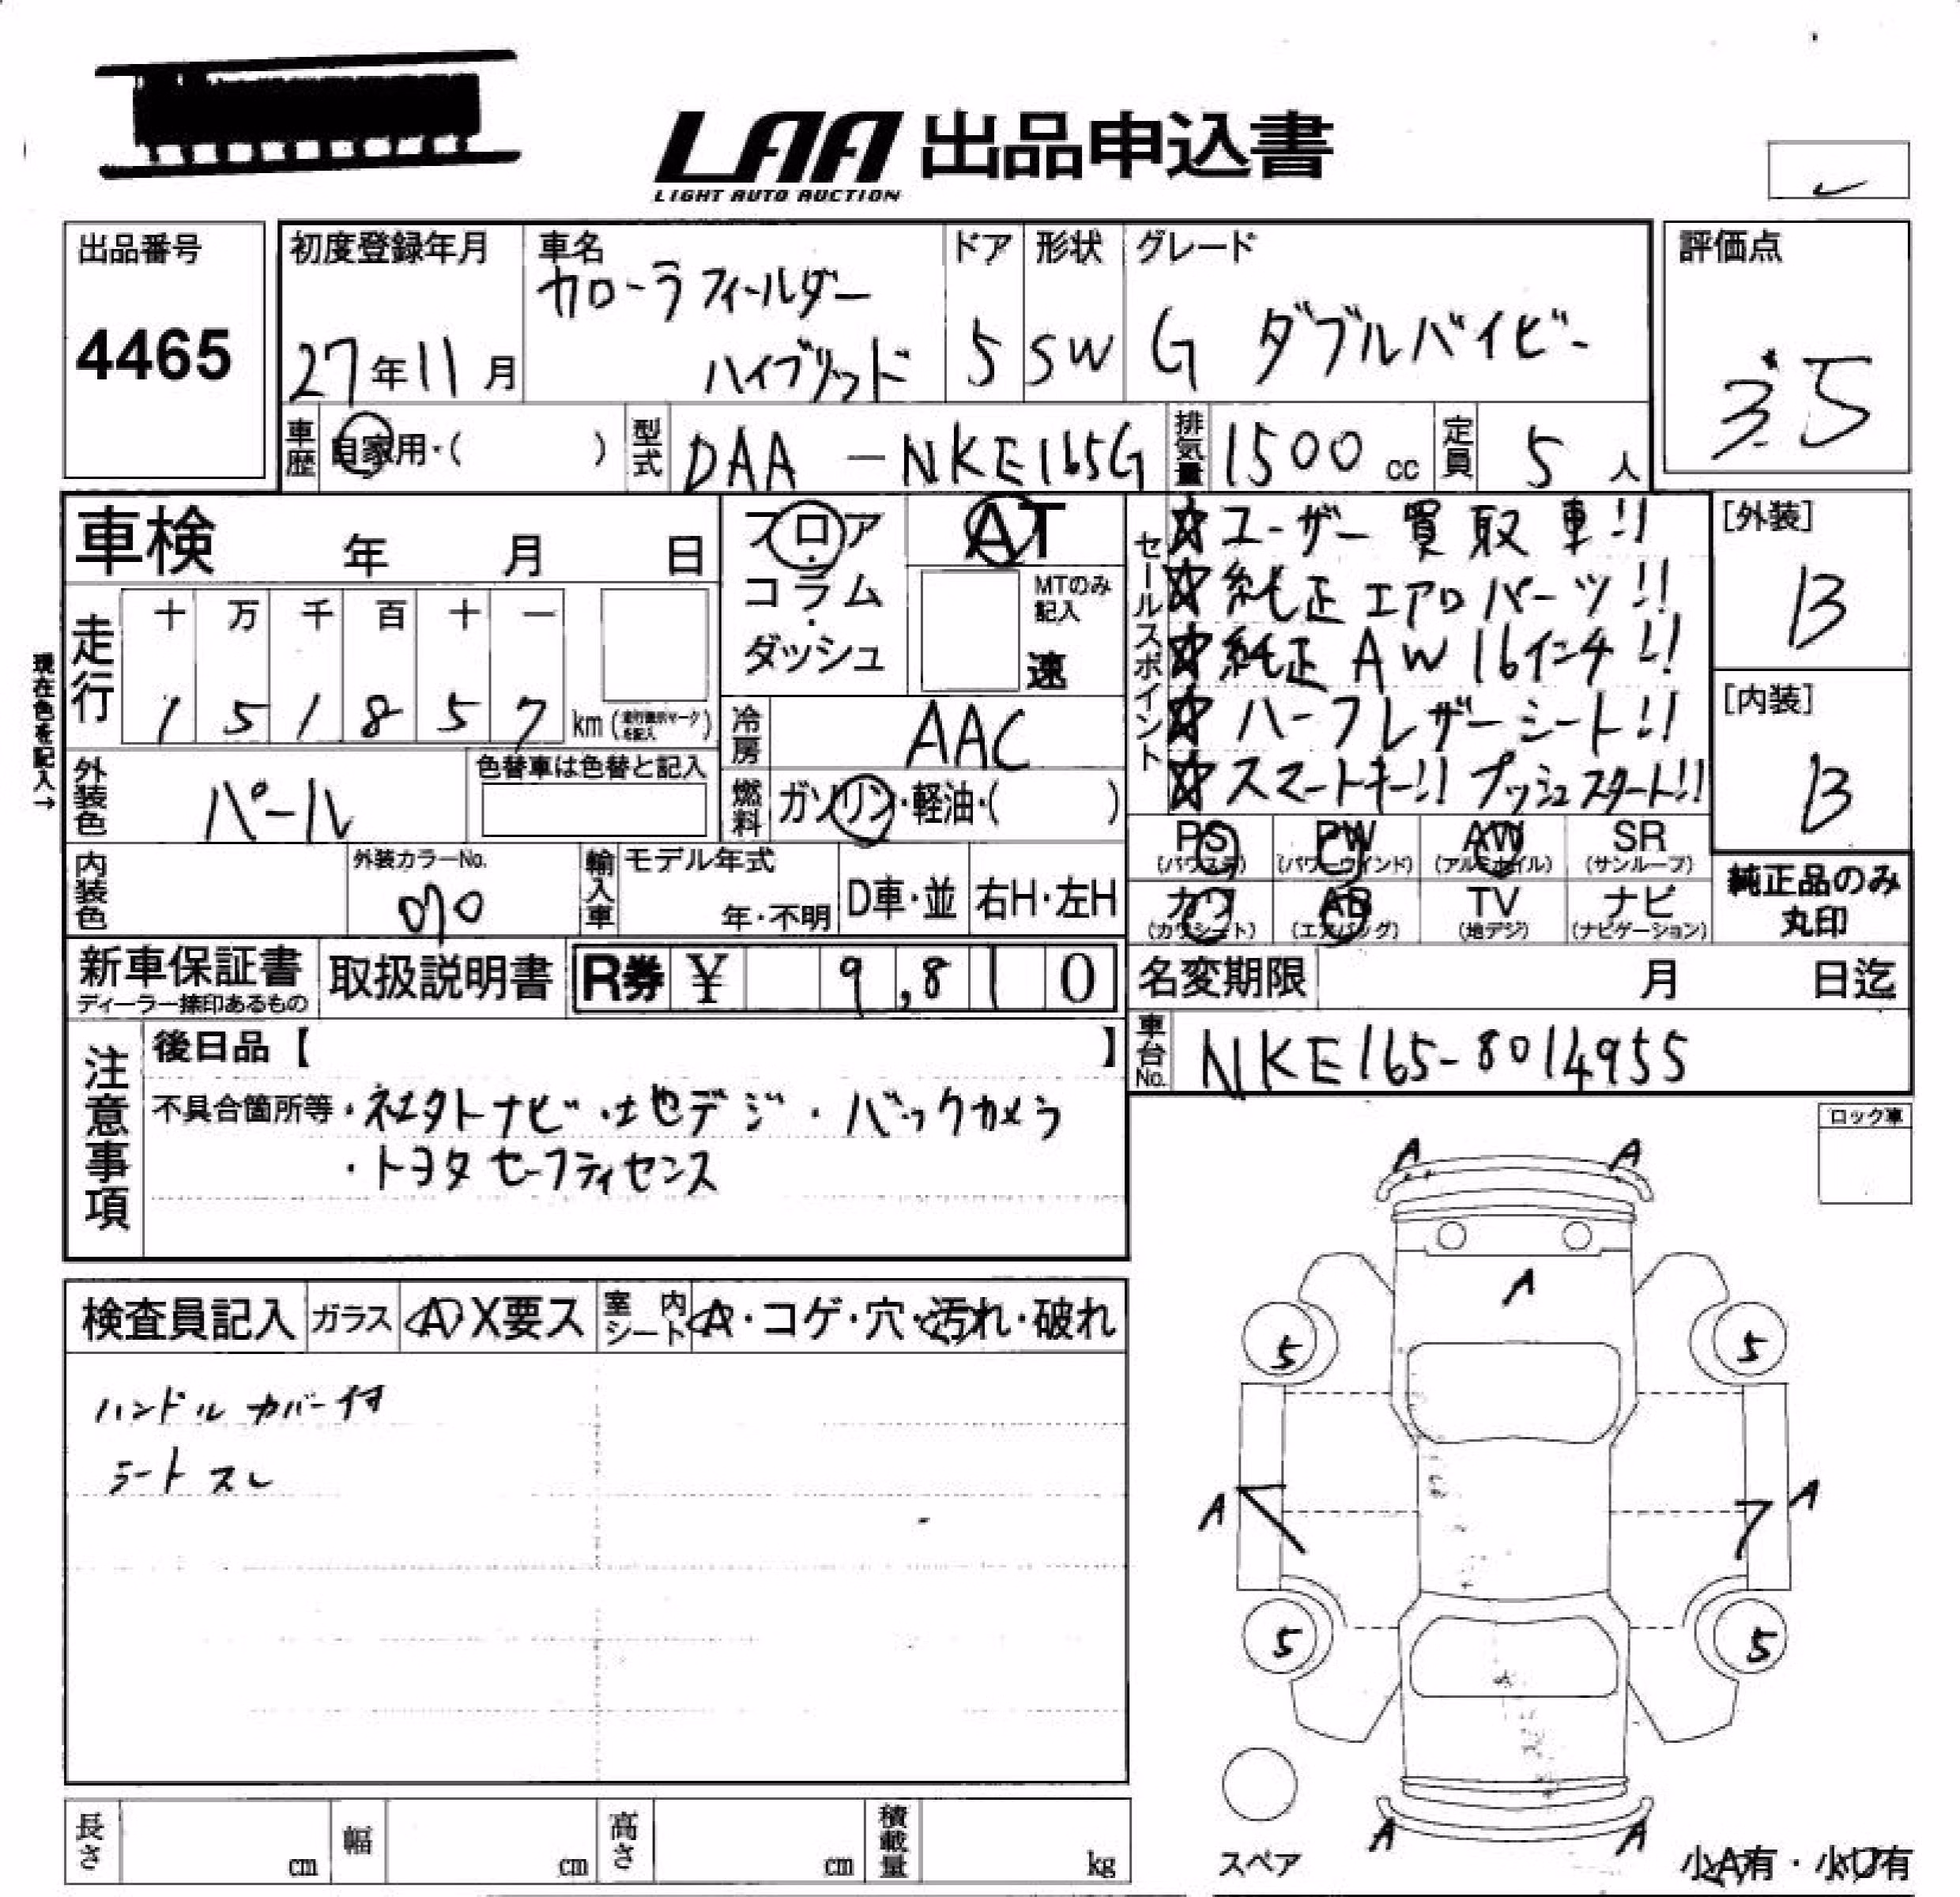 LAA 出品申込書
LIGHT AUTO AUCTION
出品番号
4465
初度登録年月
27年11月
車名
カローラフィールダー
ハイブリッド
ドア
5
形状
SW
グレード
G ダブルバイビー
評価点
3.5
車歴
自家用・( )
型式
DAA - NKE165G
排気量
1500 cc
定員
5 人
車検 年 月 日
現在色を記入→
走行
十 万 千 百 十 一
1 5 1 8 5 7 km (走行表示マークを記入)
フロア・コラム・ダッシュ
AT
MTのみ記入
速
冷房
AAC
燃料
ガソリン・軽油・( )
セールスポイント
☆ユーザー買取車!!
☆純正エアロパーツ!!
☆純正AW16インチ!!
☆ハーフレザーシート!!
☆スマートキー!! プッシュスタート!!
[外装]
B
[内装]
B
外装色
パール
色替車は色替と記入
内装色
外装カラーNo.
070
輸入車
モデル年式
年・不明
D車・並
右H・左H
PS (パワステ)
PW (パワーウインド)
AW (アルミホイル)
SR (サンルーフ)
カワ (カワシート)
AB (エアバッグ)
TV (地デジ)
ナビ (ナビゲーション)
純正品のみ
丸印
新車保証書
ディーラー捺印あるもの
取扱説明書
R券 ¥ 9,810
名変期限 月 日迄
車台No.
NKE165-8014955
注意事項
後日品【 】
不具合箇所等・社外ナビ・地デジ・バックカメラ
・トヨタセーフティセンス
ロック車
検査員記入
ガラス
A X要ス
室内シート
A・コゲ・穴・汚れ・破れ
ハンドルカバー付
シートスレ
A A
A
5 5
A A
5 5
A A
スペア
小A有・小U有
長さ cm
幅 cm
高さ cm
積載量 kg